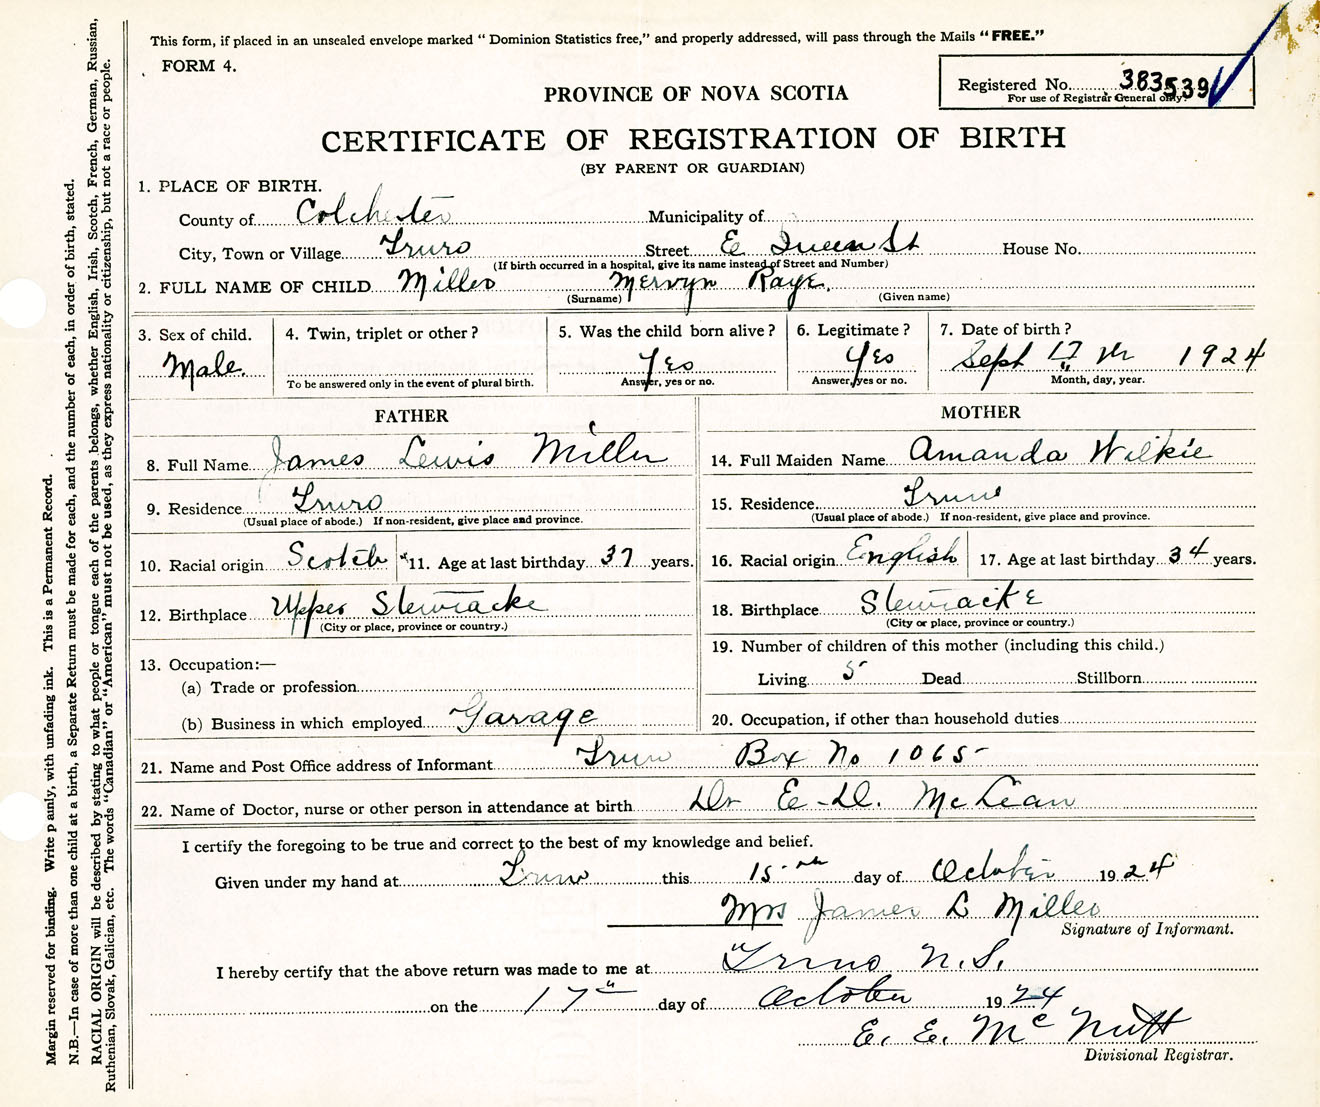 This form, if placed in an unsealed envelope marked “ Dominion Statistics free,” and properly addressed, will pass through the Mails “ FREE.”
FORM 4.
Registered No. 383539
For use of Registrar General only.
PROVINCE OF NOVA SCOTIA
CERTIFICATE OF REGISTRATION OF BIRTH
(BY PARENT OR GUARDIAN)
1. PLACE OF BIRTH.
County of Colchester Municipality of
City, Town or Village Truro Street E Queen St House No.
(If birth occurred in a hospital, give its name instead of Street and Number)
2. FULL NAME OF CHILD Miller Mervyn Raye.
(Surname) (Given name)
3. Sex of child. Male.
4. Twin, triplet or other ?
To be answered only in the event of plural birth.
5. Was the child born alive ? Yes
Answer, yes or no.
6. Legitimate ? Yes
Answer, yes or no.
7. Date of birth ?
Sept 17 th 1924
Month, day, year.
FATHER
8. Full Name James Lewis Miller
9. Residence Truro
(Usual place of abode.) If non-resident, give place and province.
10. Racial origin Scotch 11. Age at last birthday 37 years.
12. Birthplace Upper Stewiacke
(City or place, province or country.)
13. Occupation:—
(a) Trade or profession
(b) Business in which employed Garage
MOTHER
14. Full Maiden Name Amanda Wilkie
15. Residence Truro
(Usual place of abode.) If non-resident, give place and province.
16. Racial origin English 17. Age at last birthday 34 years.
18. Birthplace Stewiacke
(City or place, province or country.)
19. Number of children of this mother (including this child.)
Living 5 Dead Stillborn
20. Occupation, if other than household duties
21. Name and Post Office address of Informant Truro Box No 1065
22. Name of Doctor, nurse or other person in attendance at birth Dr E-D. McLean
I certify the foregoing to be true and correct to the best of my knowledge and belief.
Given under my hand at Truro this 15th day of October 1924
Mrs James L Miller
Signature of Informant.
I hereby certify that the above return was made to me at Truro N.S.
on the 17th day of October 1924
E. E. McNutt
Divisional Registrar.
Margin reserved for binding. Write p anly, with unfading ink. This is a Permanent Record.
N.B.—In case of more than one child at a birth, a Separate Return must be made for each, and the number of each, in order of birth, stated.
RACIAL ORIGIN will be described by stating to what people or tongue each of the parents belongs, whether English, Irish, Scotch, French, German, Russian,
Ruthenian, Slovak, Galician, etc. The words “Canadian” or “American” must not be used, as they express nationality or citizenship, but not a race or people.